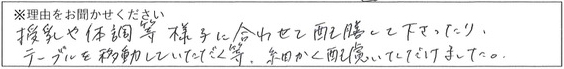 ※理由をお聞かせください
授乳や体調等 様子に合わせて配膳して下さったり、
テーブルを移動していただく等、細かく配慮いただけました。